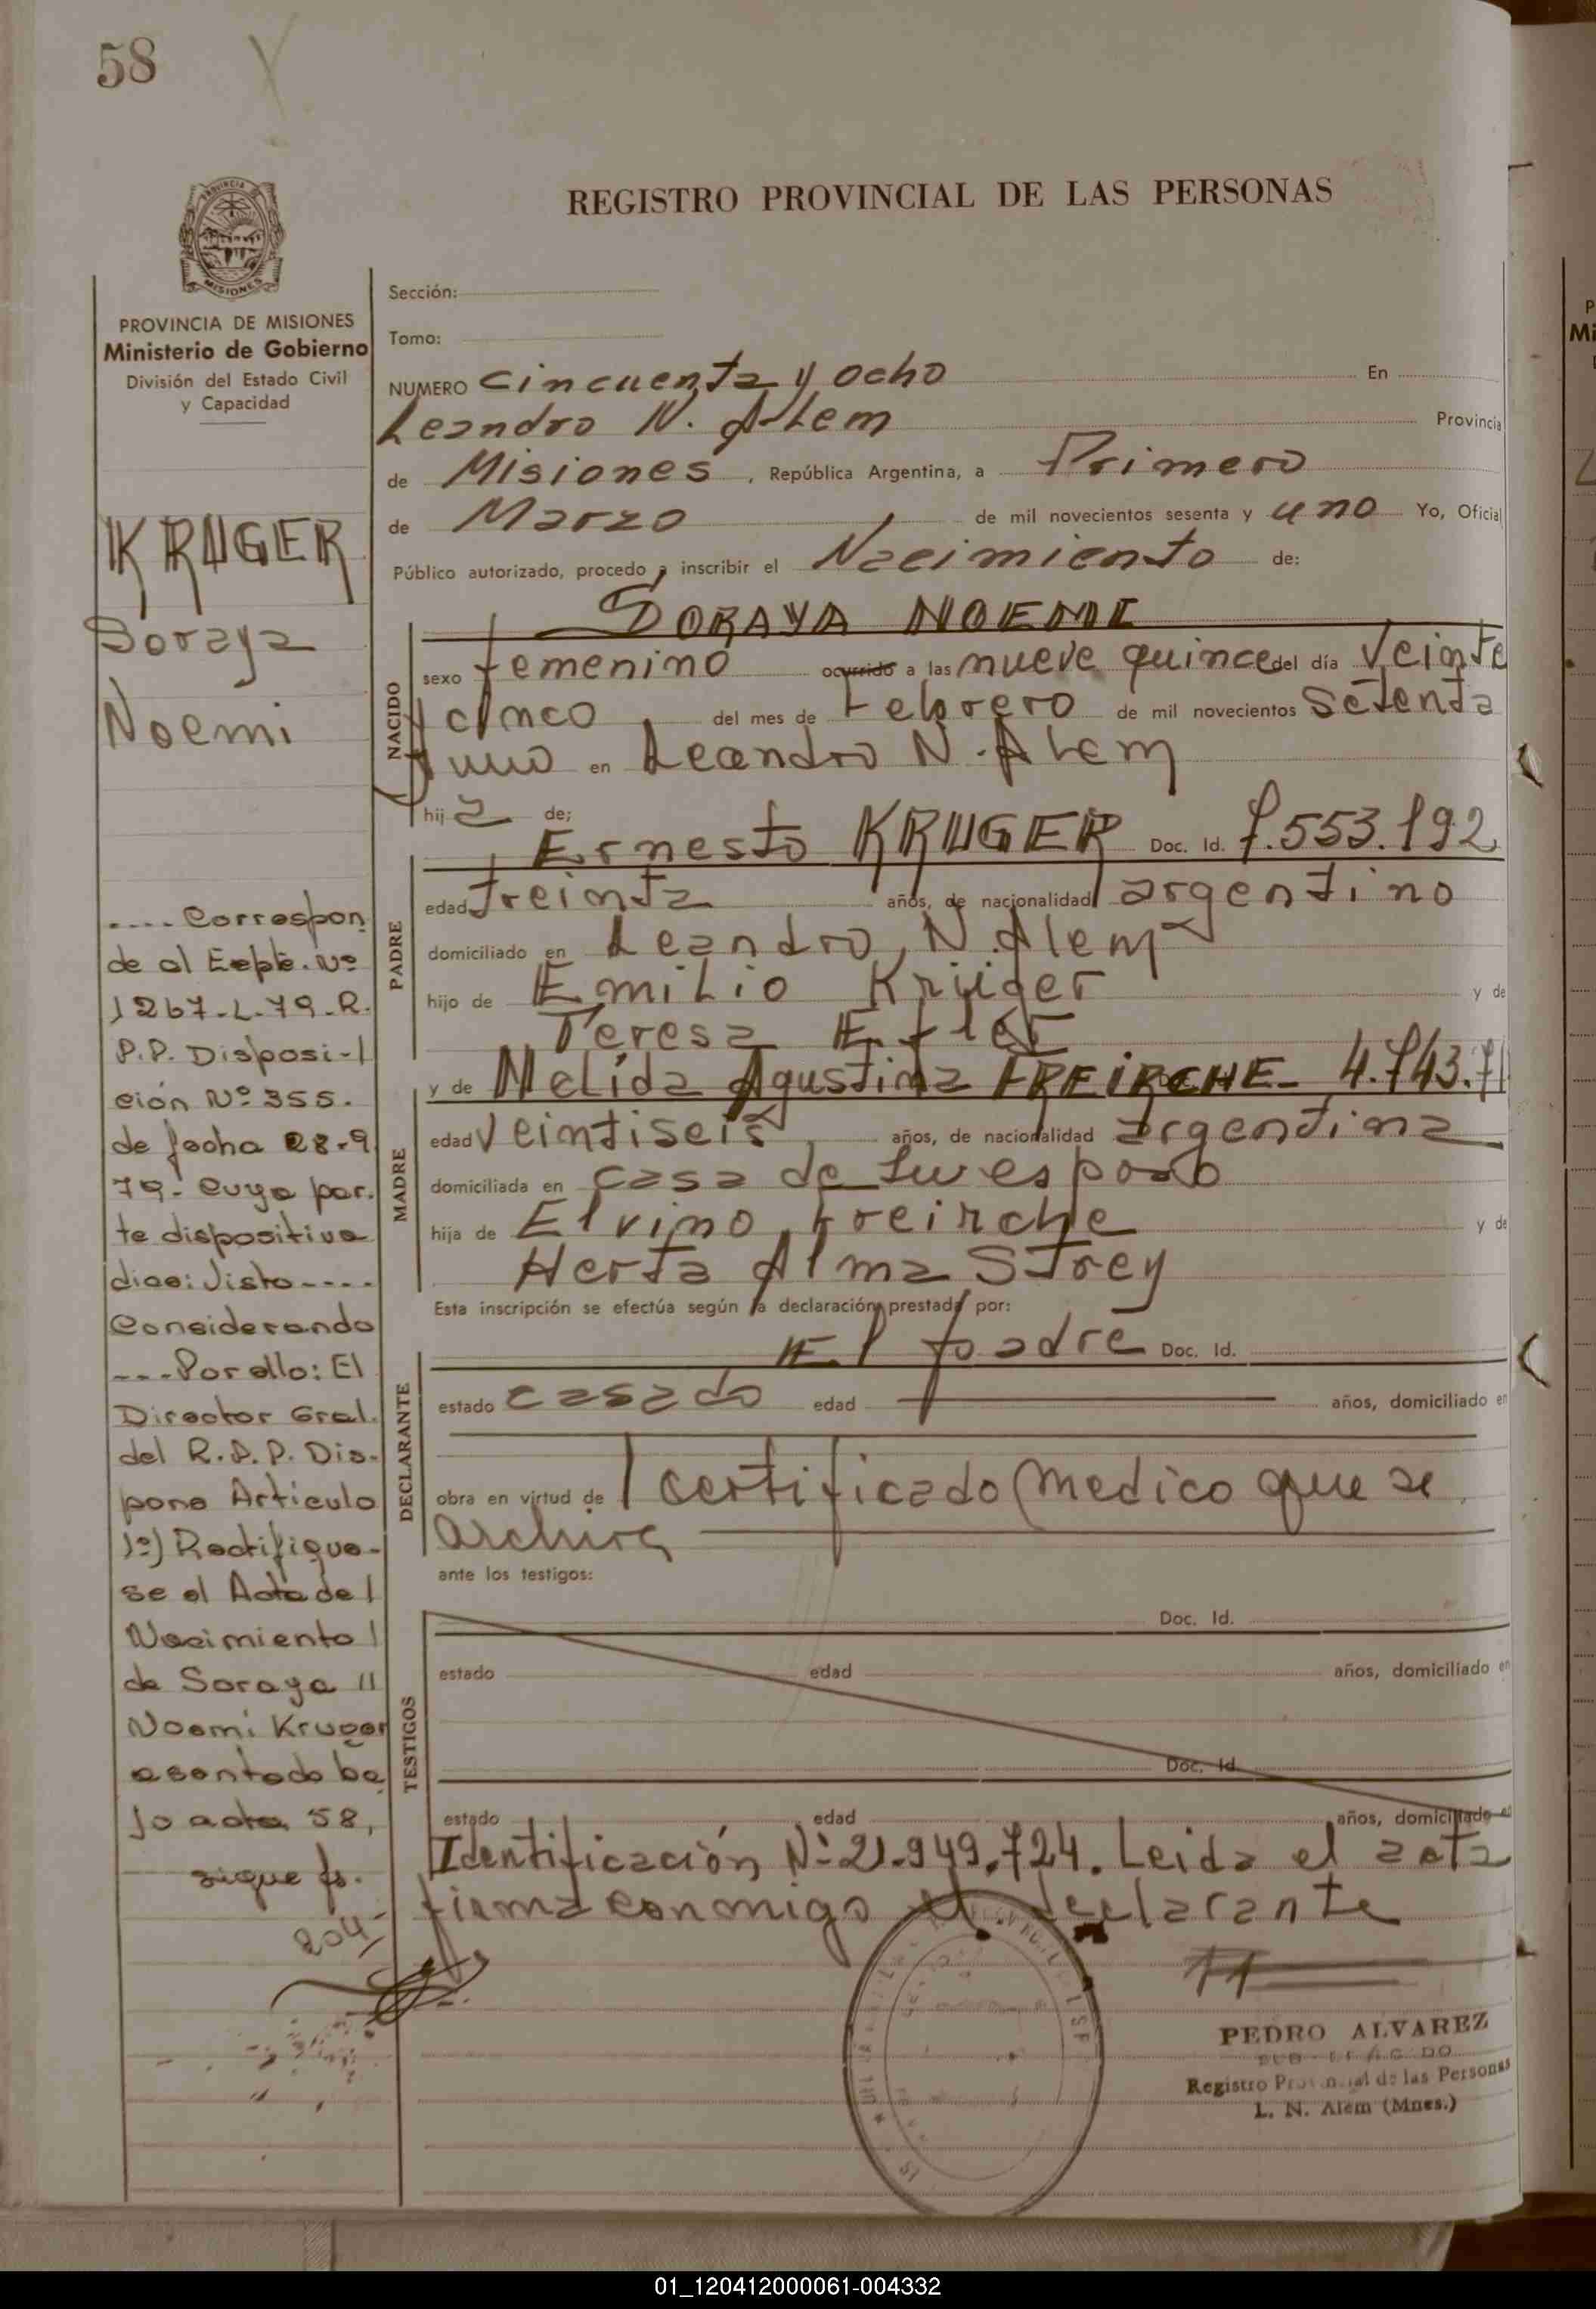 58
REGISTRO PROVINCIAL DE LAS PERSONAS
PROVINCIA
MISIONES
PROVINCIA DE MISIONES
Ministerio de Gobierno
División del Estado Civil
y Capacidad
KRUGER
Soraya
Noemi
.... Correspon
de al Expte. Nº
1267-L-79-R.
P.P. Disposi-
ción Nº 355.
de fecha 28-9
79- cuya par.
te dispositiva
dice: Visto ----
Considerando
---Por ello: El
Director Gral.
del R.P.P. Dis-
pone Artículo
1º) Rectifique-
se el Acta de
Nacimiento
de Soraya
Noemi Kruger
asentado ba
jo acta 58,
sigue fs.
204
Sección:
Tomo:
NUMERO cincuenta y ocho En
Leandro N. Alem Provincia
de Misiones , República Argentina, a Primero
de Marzo de mil novecientos sesenta y uno Yo, Oficial
Público autorizado, procedo a inscribir el Nacimiento de:
SORAYA NOEMI
NACIDO
sexo femenino ocurrido a las nueve quince del día veinte
y cinco del mes de Febrero de mil novecientos setenta
y uno en Leandro N. Alem
hija de;
Ernesto KRUGER Doc. Id. 7.553.192
PADRE
edad treinta años, de nacionalidad argentino
domiciliado en Leandro N. Alem
hijo de Emilio Krüger y de
Teresa
y de Nelida Agustina FREIRCHE- 4.743.71
MADRE
edad veintiseis años, de nacionalidad argentina
domiciliada en casa de su esposo
hija de Elvino Freirche y de
Herta Alma Strey
Esta inscripción se efectúa según la declaración prestada por:
El padre Doc. Id.
DECLARANTE
estado casado edad años, domiciliado en
obra en virtud de certificado medico que se
archiva
ante los testigos:
TESTIGOS
Doc. Id.
estado edad años, domiciliado en
Doc. Id
estado edad años, domiciliado en
Identificación Nº 21.949.724. Leida el acta
firma conmigo el declarante
PEDRO ALVAREZ
Registro Provincial de las Personas
L. N. Alem (Mnes.)
01_120412000061-004332